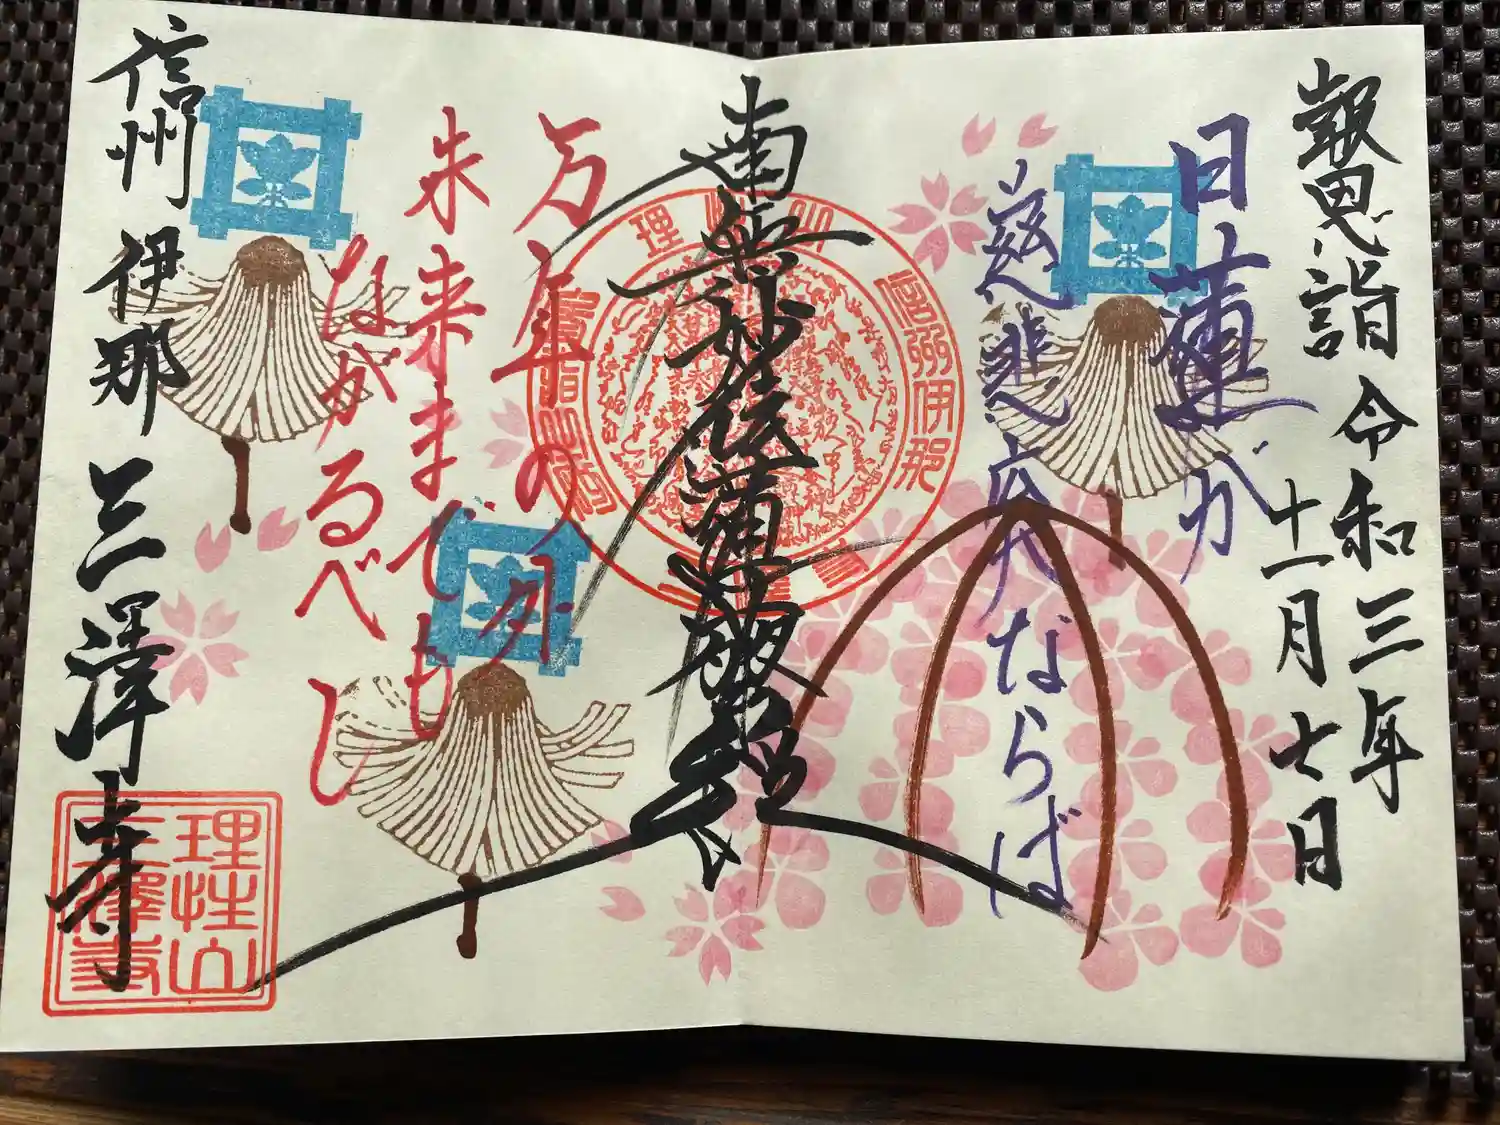 報恩詣
令和三年
十一月七日
日蓮が
慈悲広大ならば
南無妙法蓮華経
万年の外
未来までも
ながるべし
信州伊那
三澤寺
理性山
三澤寺